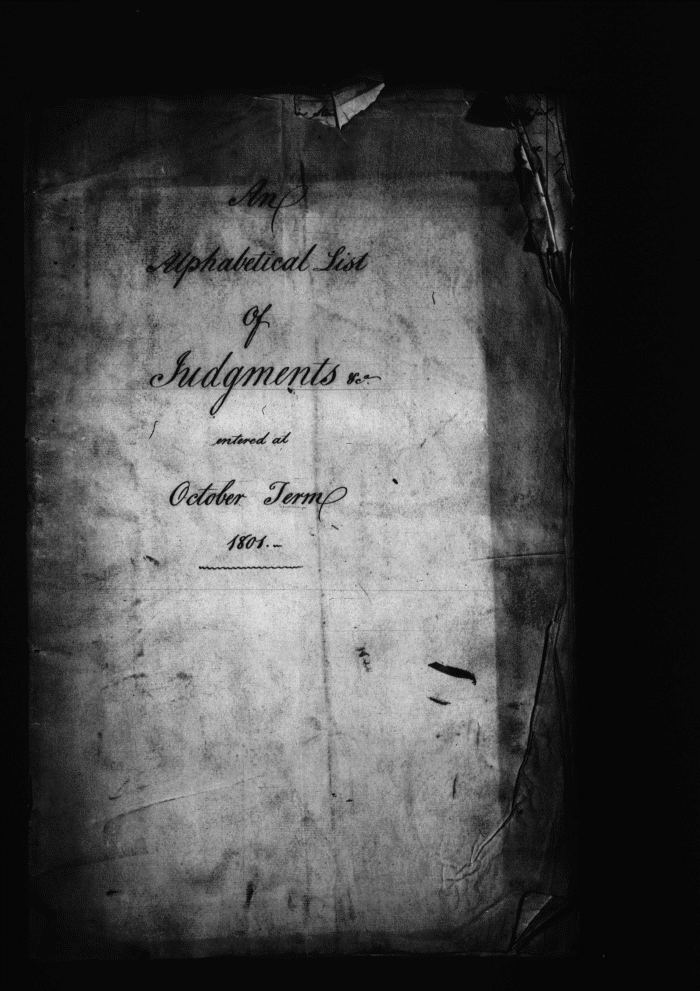 An
Alphabetical List
Of
Judgments &c.
entered at
October Term
1801.-